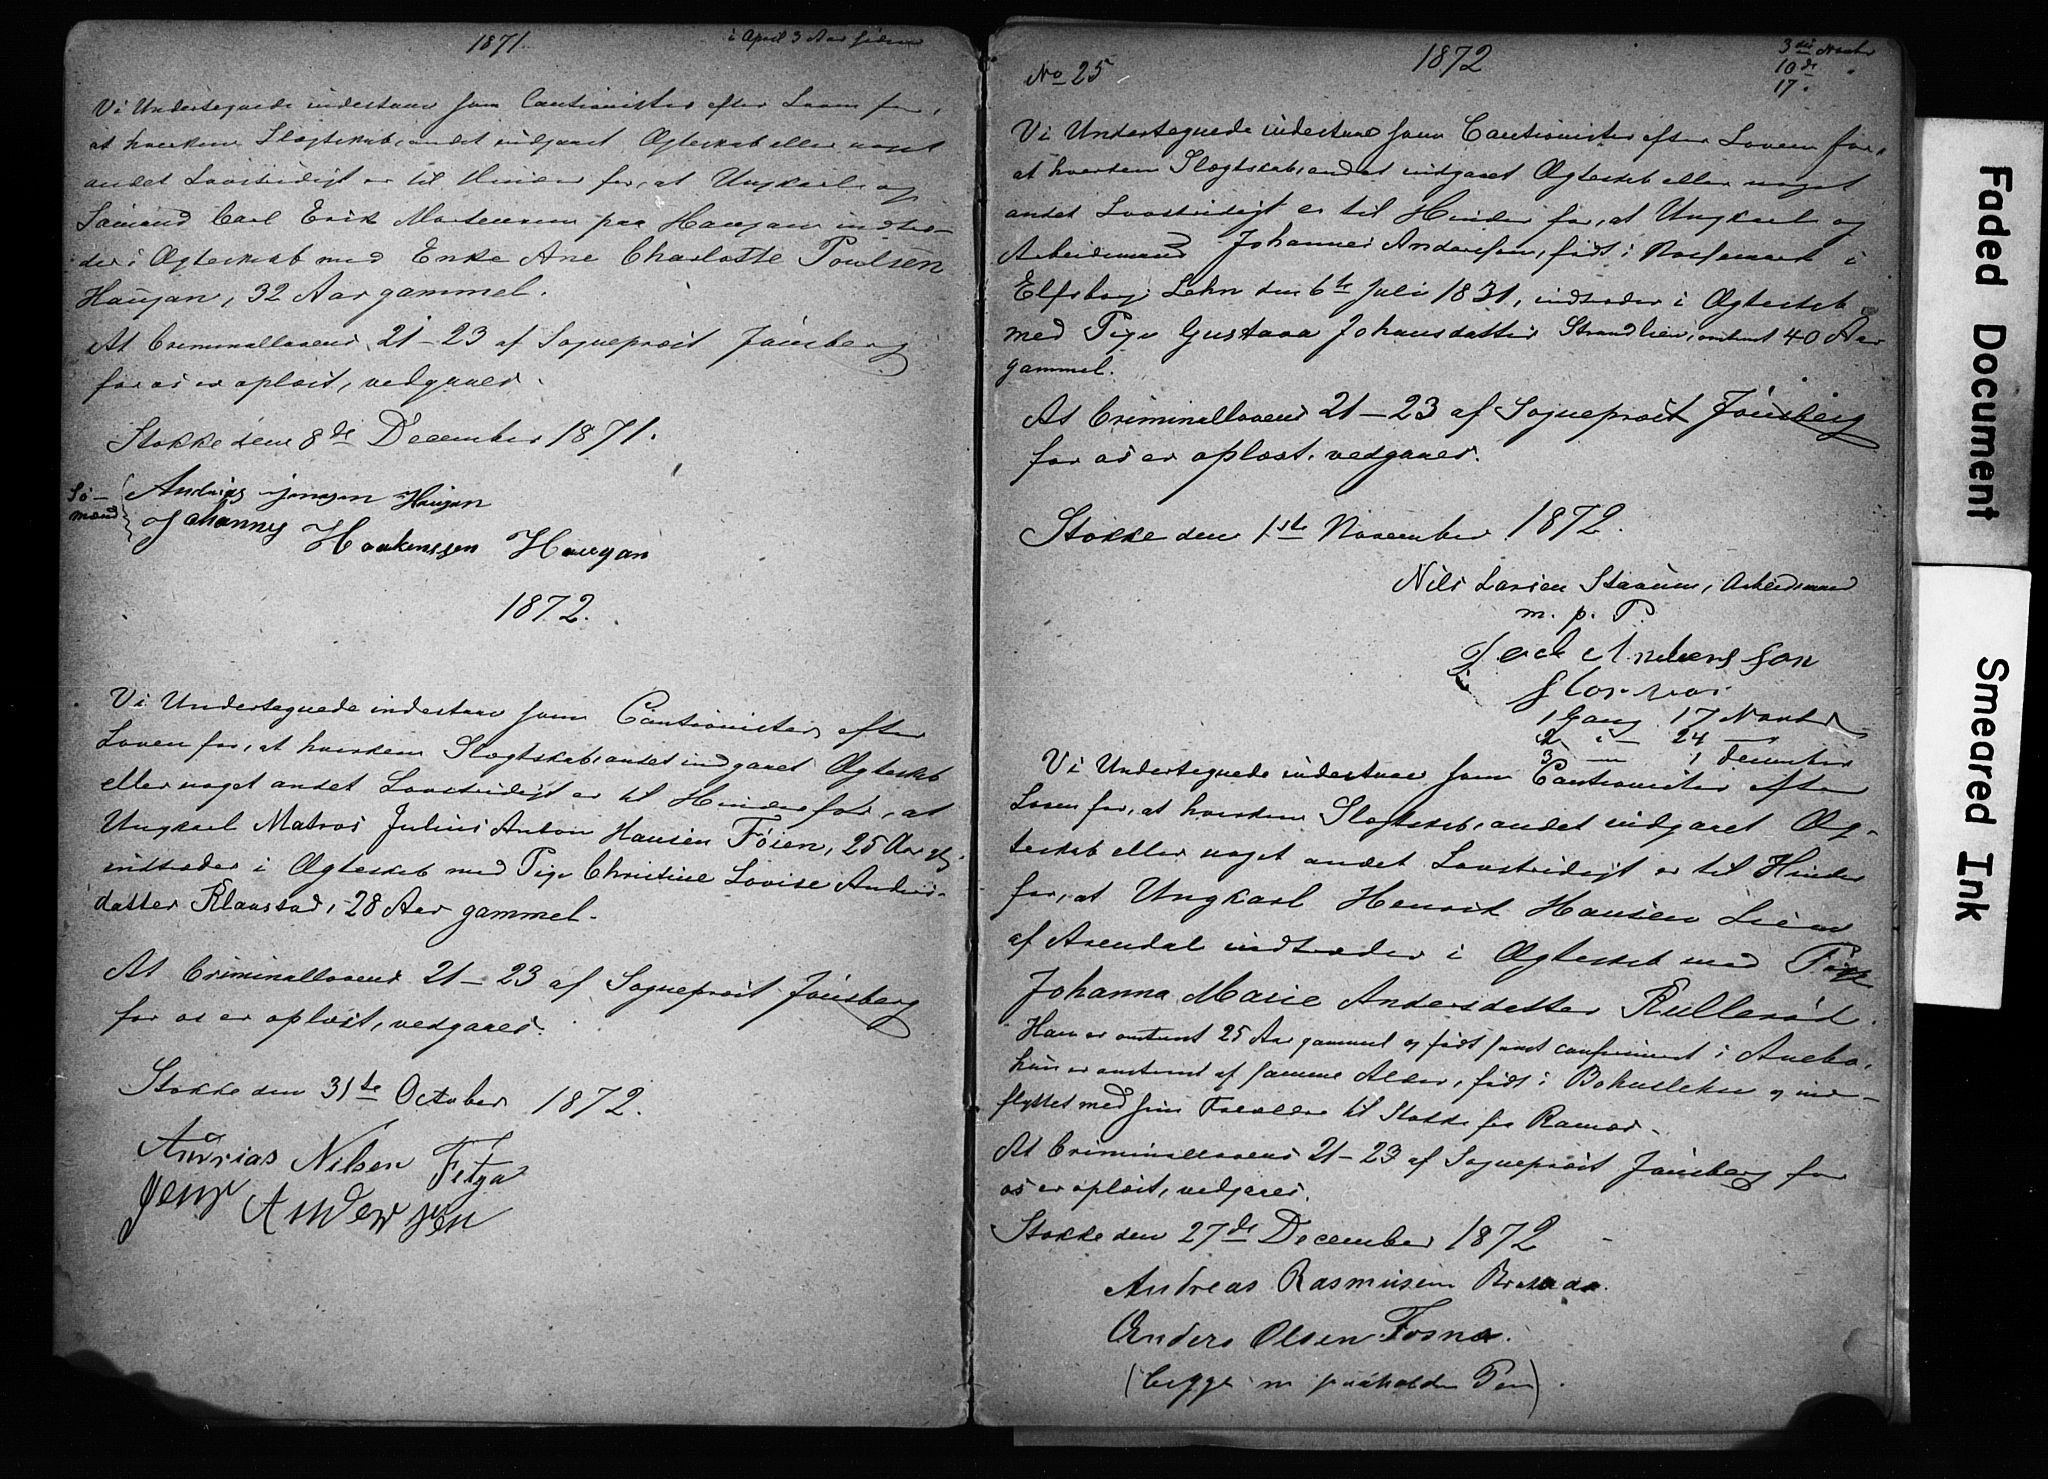 1871
i April 3 Aar siden
Vi Undertegnede indestaae som Cautionister efter Loven for,
at hverken Slægtskab, andet indgaaet Ægteskab eller noget
andet Lovstridigt er til Hinder for, at Ungkarl og
Sømand Carl Erik Mortensen paa Haugan indtræ-
der i Ægteskab med Enke Ane Charlotte Poulsen
Haugan, 32 Aar gammel.
At Criminallovens 21-23 af Sogneprest Jønsberg
for os er oplæst, vedgaaes.
Stokke den 8de December 1871.
Sø-
mænd
Andreas Jensen Haugan
Johannes Haakenssen Haugan
1872.
Vi Undertegnede indestaae som Cautionister efter
Loven for, at hverken Slægtskab, andet indgaaet Ægteskab
eller noget andet Lovstridigt er til Hinder for, at
Ungkarl Matros Julius Anton Hansen Føien, 25 Aar gl,
indtræder i Ægteskab med Pige Christine Lovise Anders-
datter Klaastad, 28 Aar gammel.
At Criminallovens 21-23 af Sogneprest Jønsberg
for os er oplæst, vedgaaes.
Stokke den 31te October 1872.
Andrias Nilsen Fetja
Jens Andersen
No 25
1872
3die Novbr
10de "
17.
Vi Undertegnede indestaae som Cautionister efter Loven for,
at hverken Slægtskab, andet indgaaet Ægteskab eller noget
andet Lovstridigt er til Hinder for, at Ungkarl og
Arbeidsmand Johannes Andersson, født i Nossemark i
Elfsborgs Lehn den 6te Juli 1831, indtræder i Ægteskab
med Pige Gustava Johansdatter Strandlien, omtrent 40 Aar
gammel.
At Criminallovens 21-23 af Sogneprest Jønsberg
for os er oplæst, vedgaaes.
Stokke den 1ste November 1872.
Nils Larsen Staaum, Arbeidsmand
m. p. P.
Andersson
1 Gang 17 Novbr
2 - 24 -
3 - 1 December
Vi Undertegnede indestaae som Cautionister efter
Loven for, at hverken Slægtskab, andet indgaaet Æg-
teskab eller noget andet Lovstridigt er til Hinder
for, at Ungkarl Henrik Hansen Lien
af Arendal indtræder i Ægteskab med Pige
Johanna Marie Andersdatter Rullerød.
Han er omtrent 25 Aar gammel og født samt confirmeret i Anebo,
hun er omtrent af samme Alder, født i Bohuslehn og ind-
flyttet med sine Forældre til Stokke fra Ramnæs.
At Criminallovens 21-23 af Sogneprest Jønsberg for
os er oplæst, vedgaaes.
Stokke den 27de December 1872
Andreas Rasmusen
Anders Olsen Fosna.
(begge m paaholden Pen).
Faded Document
Smeared Ink